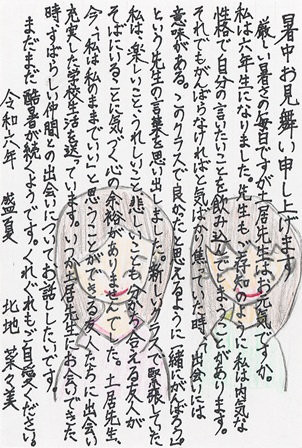 暑中お見舞い申し上げます
厳しい暑さの毎日ですが土居先生はお元気ですか。
私は六年生になりました。先生もご存知のように私は内気な
性格で自分の言いたいことを飲み込んでしまうことがあります。
それでもがんばらなければと気ばかり焦っていた時、「出会いには
意味がある。このクラスで良かったと思えるように一緒にがんばろう。」
という先生の言葉を思い出しました。新しいクラスに緊張してた
私は、楽しいこと、うれしいこと、悲しいことも分かり合える友人が
そばにいることに気づく心の余裕がありませんでした。土居先生、
今、「私は私のままでいい」と思うことができる友人たちに出会い
充実した学校生活を送っています。いつか居先生にお会いできた
時、すばらしい仲間との出会いについてお話したいです。
まだまだ酷暑が続くようです。くれぐれもご自愛ください。
令和六年 盛夏 北地 菜々美